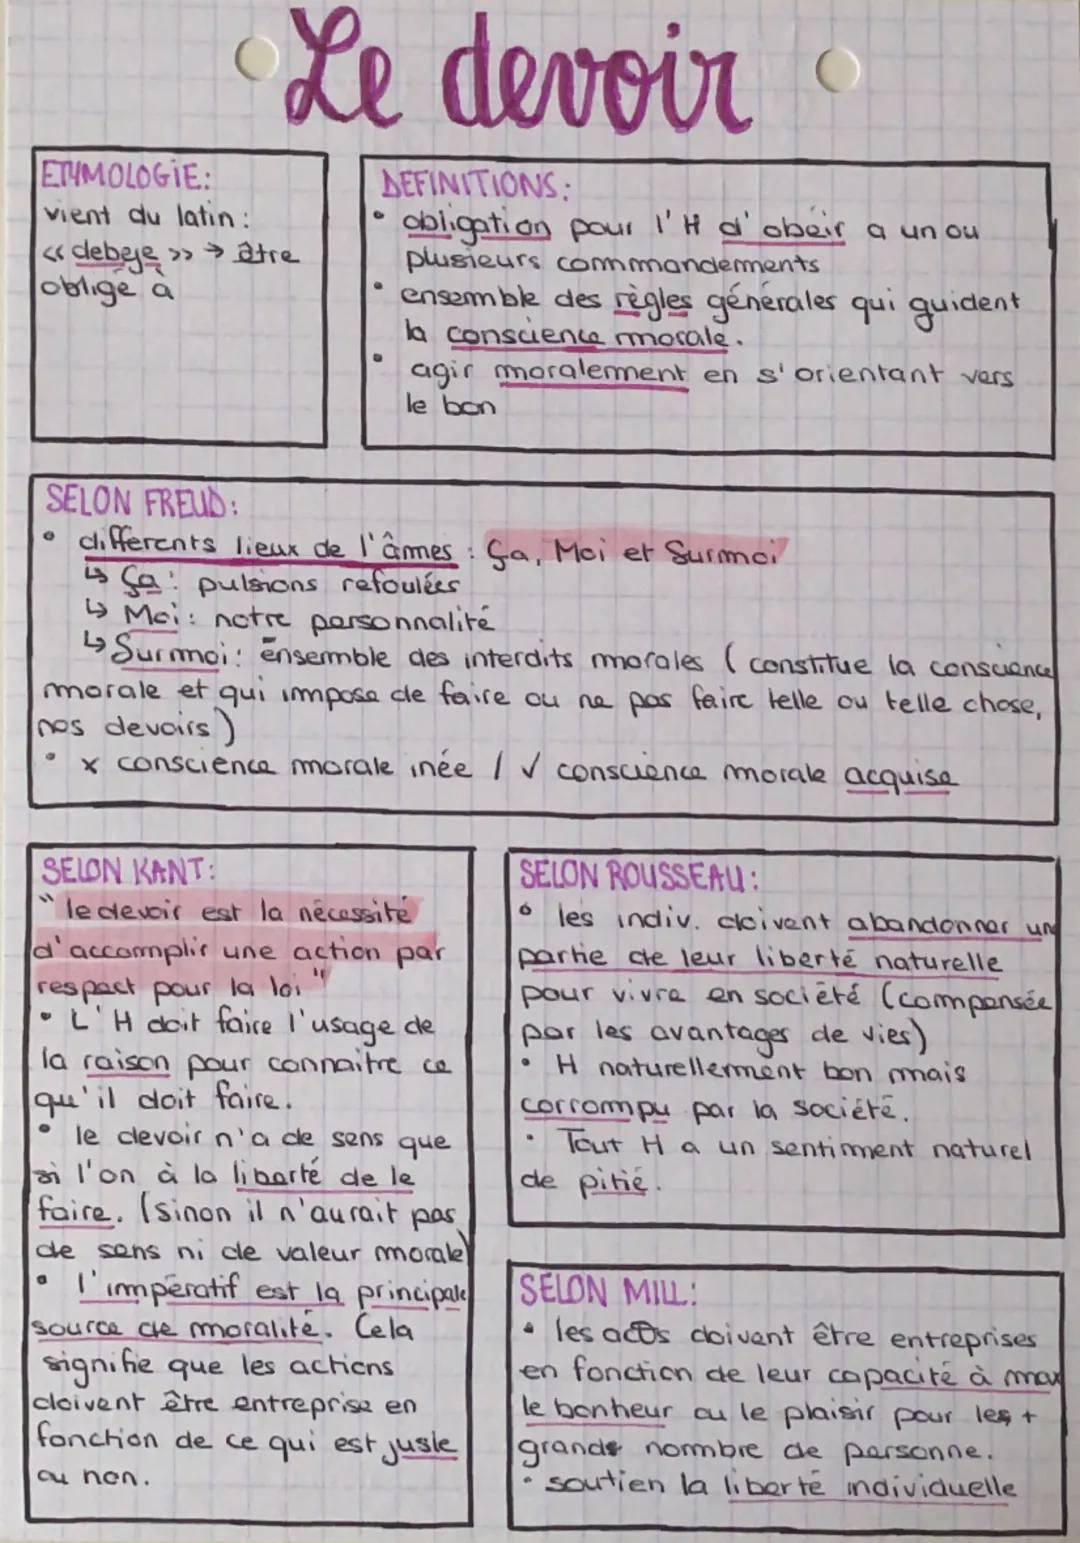 Le devoir
ETYMOLOGIE:
vient du latin :
« debeje » → être
obligé à
DEFINITIONS:
• obligation pour l'H d'obéir a un ou
plusieurs commandements
• ensemble des règles générales qui guident
la conscience morale.
• agir moralement en s'orientant vers
le bon
SELON FREUD:
• differents lieux de l'âmes : Ça, Moi et Surmoi
↳ Ça : pulsions refoulées
↳ Moi : notre personnalité
↳ Surmoi : ensemble des interdits morales ( constitue la conscience
morale et qui impose de faire ou ne pas faire telle ou telle chose,
nos devoirs )
• x conscience morale inée / √ conscience morale acquise
SELON KANT:
" le devoir est la nécessité
d'accomplir une action par
respect pour la loi "
• L'H doit faire l'usage de
la raison pour connaitre ce
qu'il doit faire.
• le devoir n'a de sens que
si l'on à la liberté de le
faire. (sinon il n'aurait pas
de sens ni de valeur morale)
• l'impératif est la principale
source de moralité. Cela
signifie que les actions
doivent être entreprise en
fonction de ce qui est juste
ou non.
SELON ROUSSEAU :
• les indiv. doivent abandonner une
partie de leur liberté naturelle
pour vivre en société (compensée
par les avantages de vies)
• H naturellement bon mais
corrompu par la société.
• Tout H a un sentiment naturel
de pitié.
SELON MILL:
• les acts doivent être entreprises
en fonction de leur capacité à max
le bonheur ou le plaisir pour les +
grands nombre de personne.
• soutien la liberté individuelle